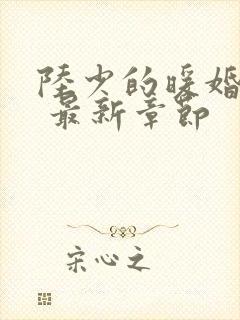 陆少的暖婚
最新章节
宋心之